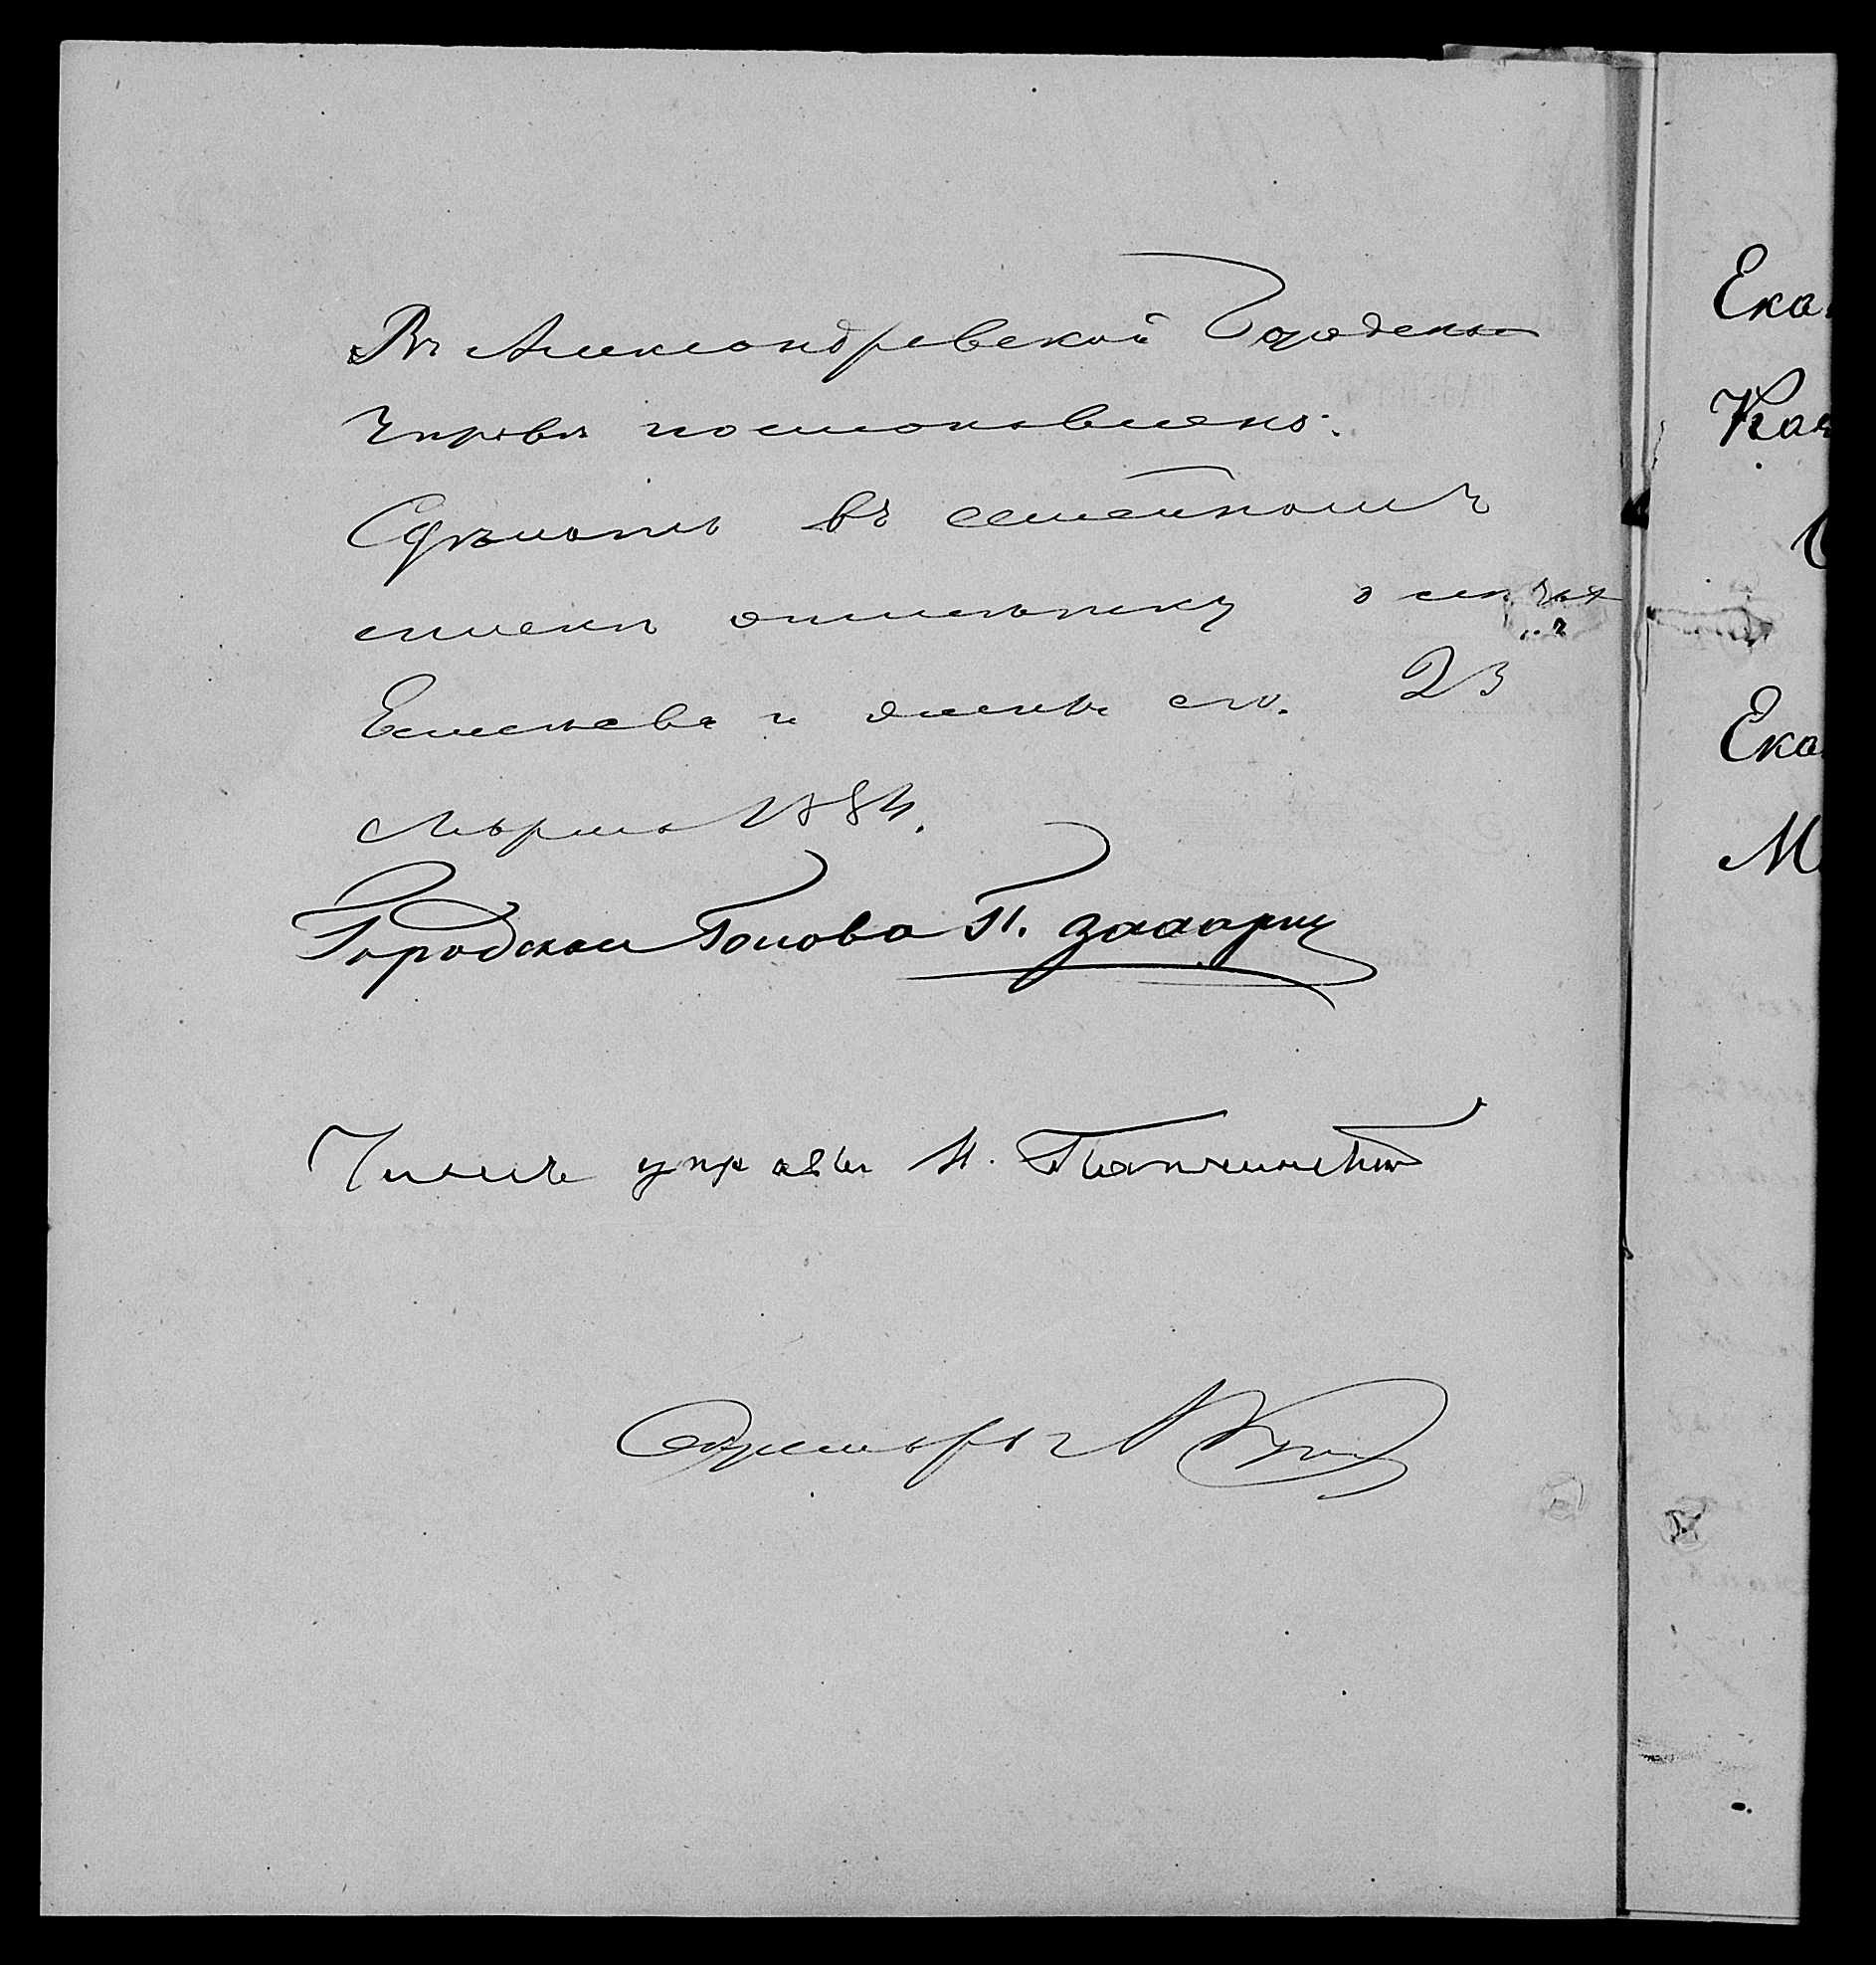 Въ Александровской Городской
Управѣ постановлено:
Сдѣлать въ семейномъ
списке отметку о
Емельева и жены его. 23
Марта 1884.
Городской Голова П. Захарин
Членъ управы И.
Секретарь
Ека
Ка
Ека
М